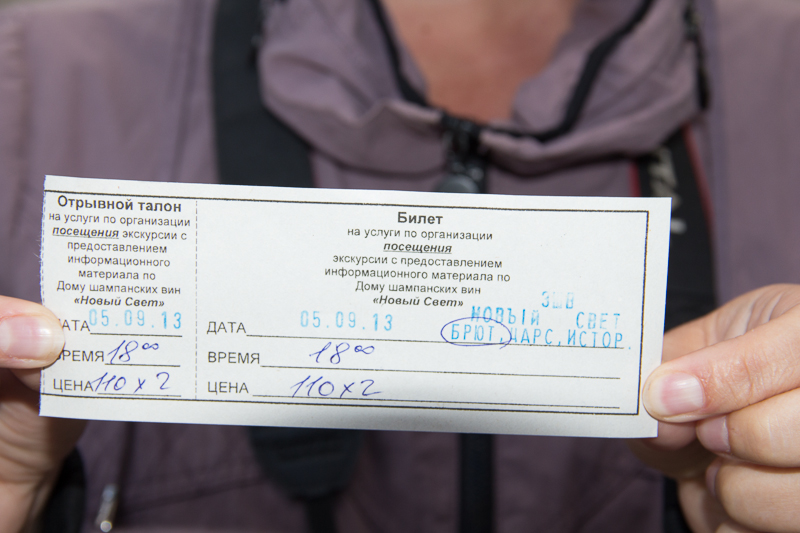 Отрывной талон
на услуги по организации
посещения экскурсии с
предоставлением
информационного
материала по
Дому шампанских вин
«Новый Свет»
ДАТА 05.09.13
ВРЕМЯ 18⁰⁰
ЦЕНА 110 x 2
Билет
на услуги по организации
посещения
экскурсии с предоставлением
информационного материала по
Дому шампанских вин
«Новый Свет»
ЗШВ
НОВЫЙ СВЕТ
ДАТА 05.09.13 БРЮТ, ЦАРС, ИСТОР.
ВРЕМЯ 18⁰⁰
ЦЕНА 110 x 2